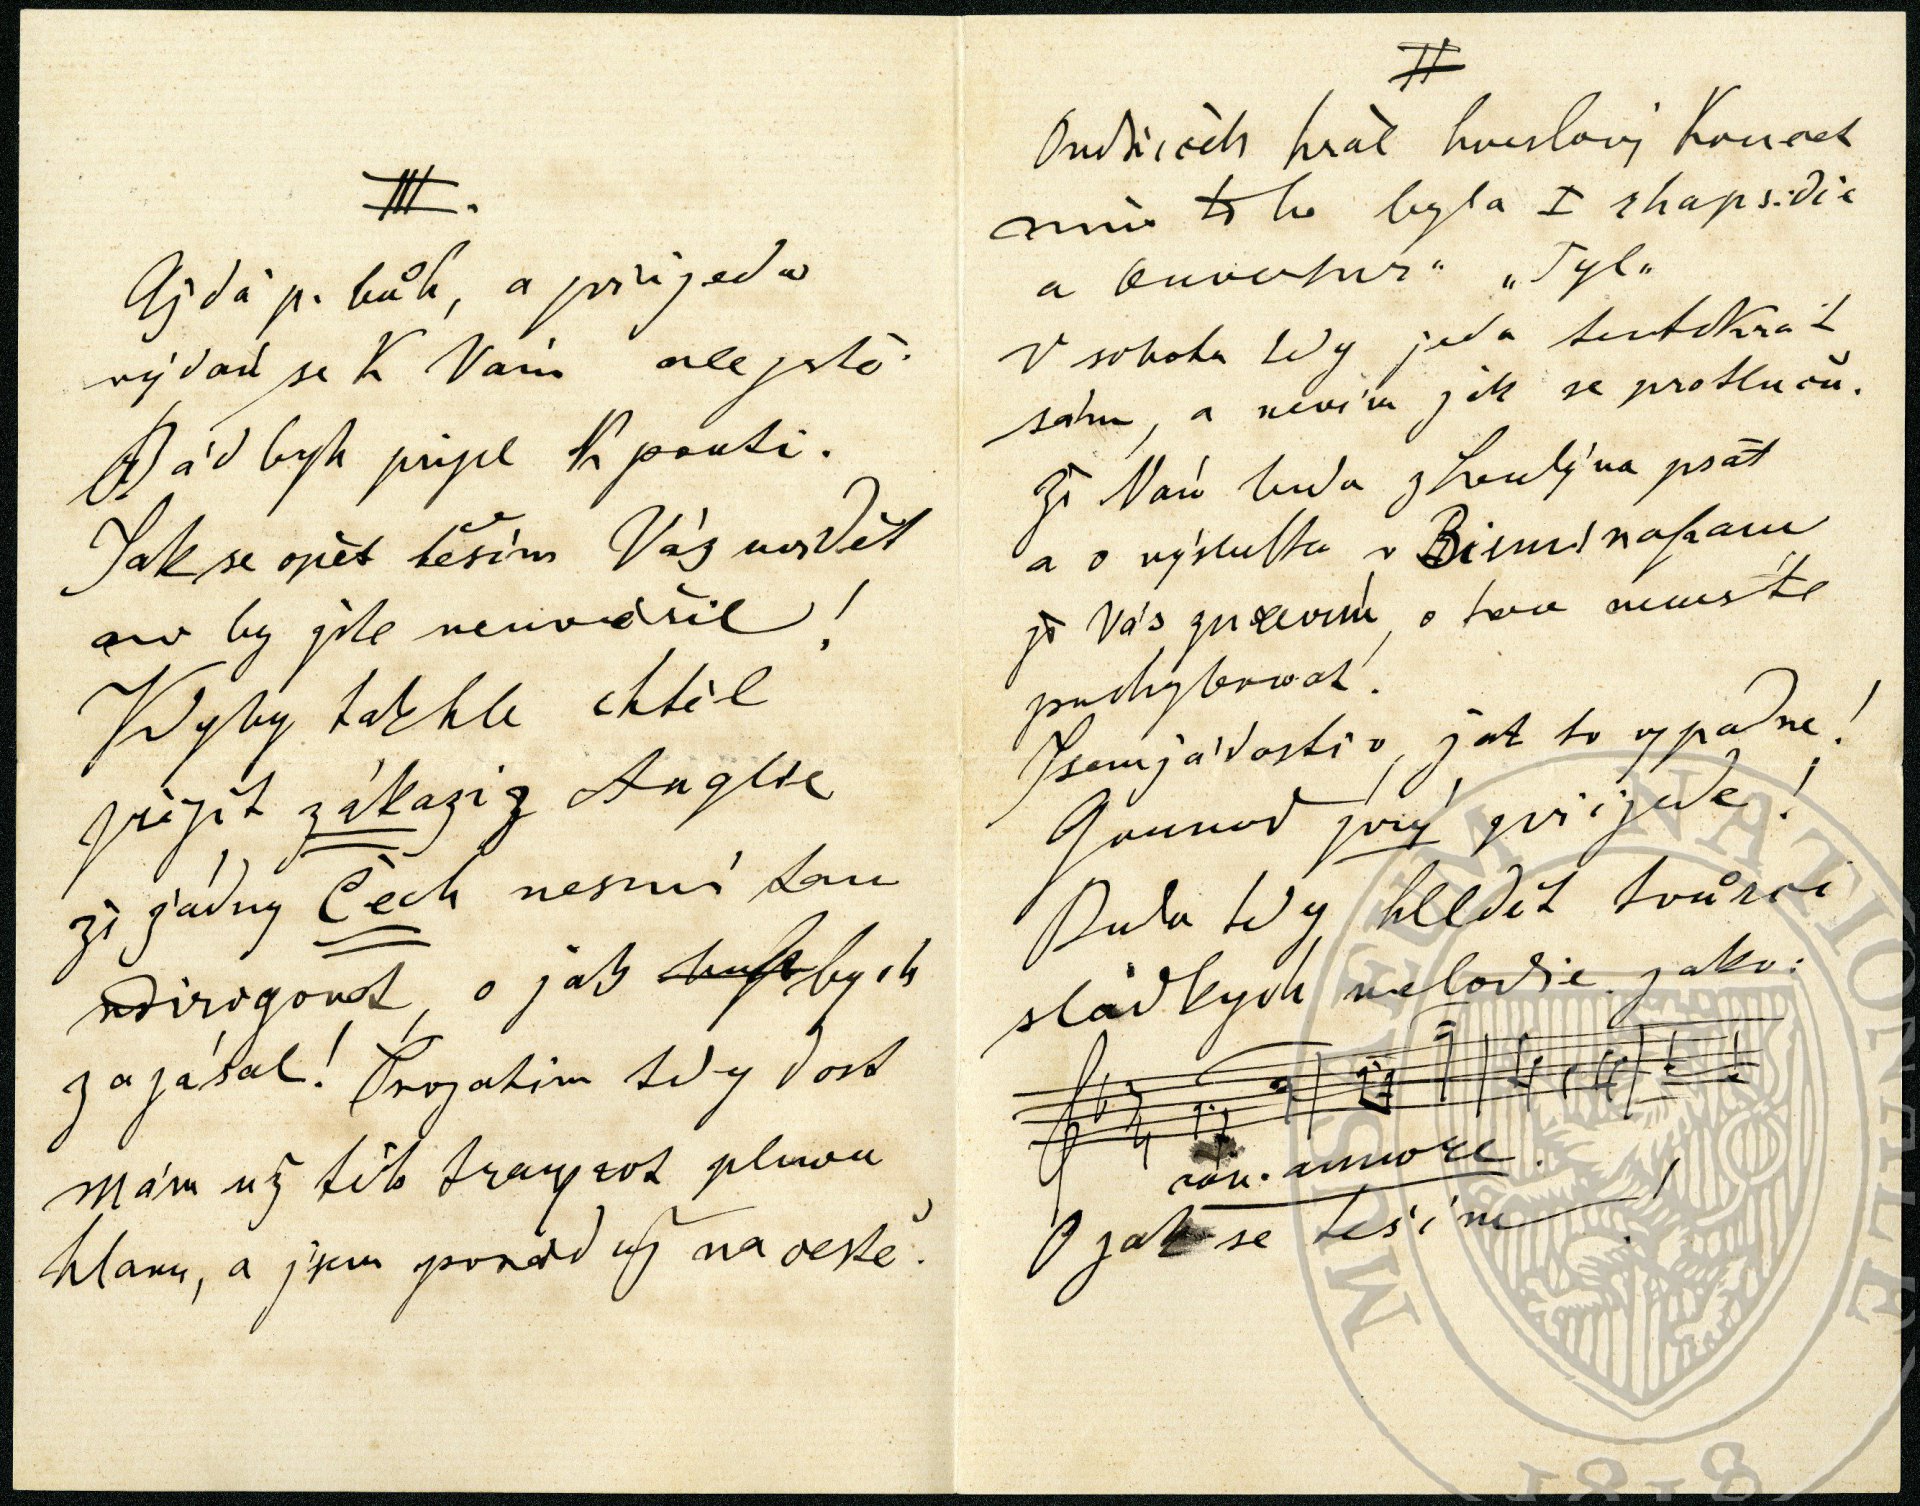 II
Ondříček hrál houslový Koncert
mimo toho byla I rhapsodie
a Ouvertura „Tyl“
V sobotu tedy jedu tentokrát
sám, a nevím jak se protluču.
Že Vám budu z Londýna psát
a o výsledku v Birminghamu
že Vás zpravím, o tom nemusíte
pochybovat.
Jsem žádostiv, jak to vypadne!
Gounod prý přijede!
Budu tedy hledět tvůrci
sladkých melodie jako:
con. amore.
O jak se těším!
III.
Až dá p. bůh, a přijedu
vydám se K Vám ale jistě
Rád bych přijel K pouti.
Jak se opět těším Vás uvidět
ani by jste nevěřil!
Kdyby takhle chtěl
přijít zákaz z Anglie
že žádný Čech nesmí tam
dirigovat, o jak bych
zajásal! Prozatím tedy dost
mám už těch trampot plnou
hlavu, a jsem pořád už na cestě.
MUSEUM NATIONALE
1818